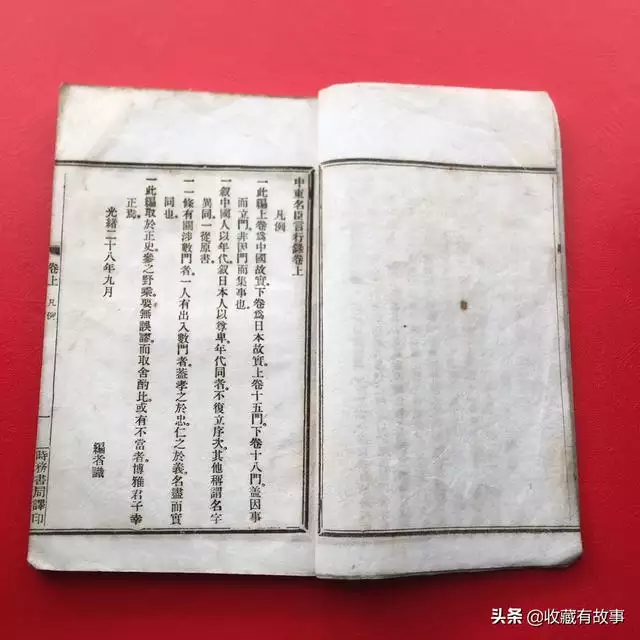 中東名臣言行錄卷上
凡例
一此編上卷爲中國故實。下卷爲日本故實。上卷十五門。下卷十八門。蓋因事
而立門。非因門而集事也。
一叙中國人以年代。叙日本人以尊卑。年代同者。不復立序次。其他稱謂名字
異同。一從原書。
一一條有關涉數門者。一人有出入數門者。蓋孝之於忠。仁之於義。名盡而實
同也。
一此編取於正史。參之野乘。要無誤謬。而取舍酌比。或有不當者。博雅君子幸
正焉。
光緒二十八年九月
編者識
卷上
凡例
時務書局譯印
头条 @收藏有故事